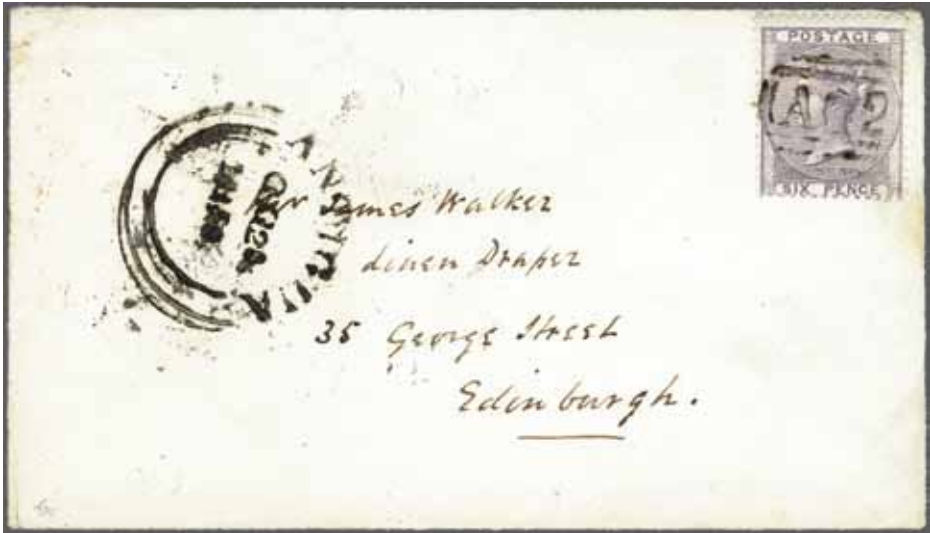 POSTAGE
A02
SIX PENCE
ANTIGUA
Mr James Walker
Linen Draper
35 George Street
Edinburgh.